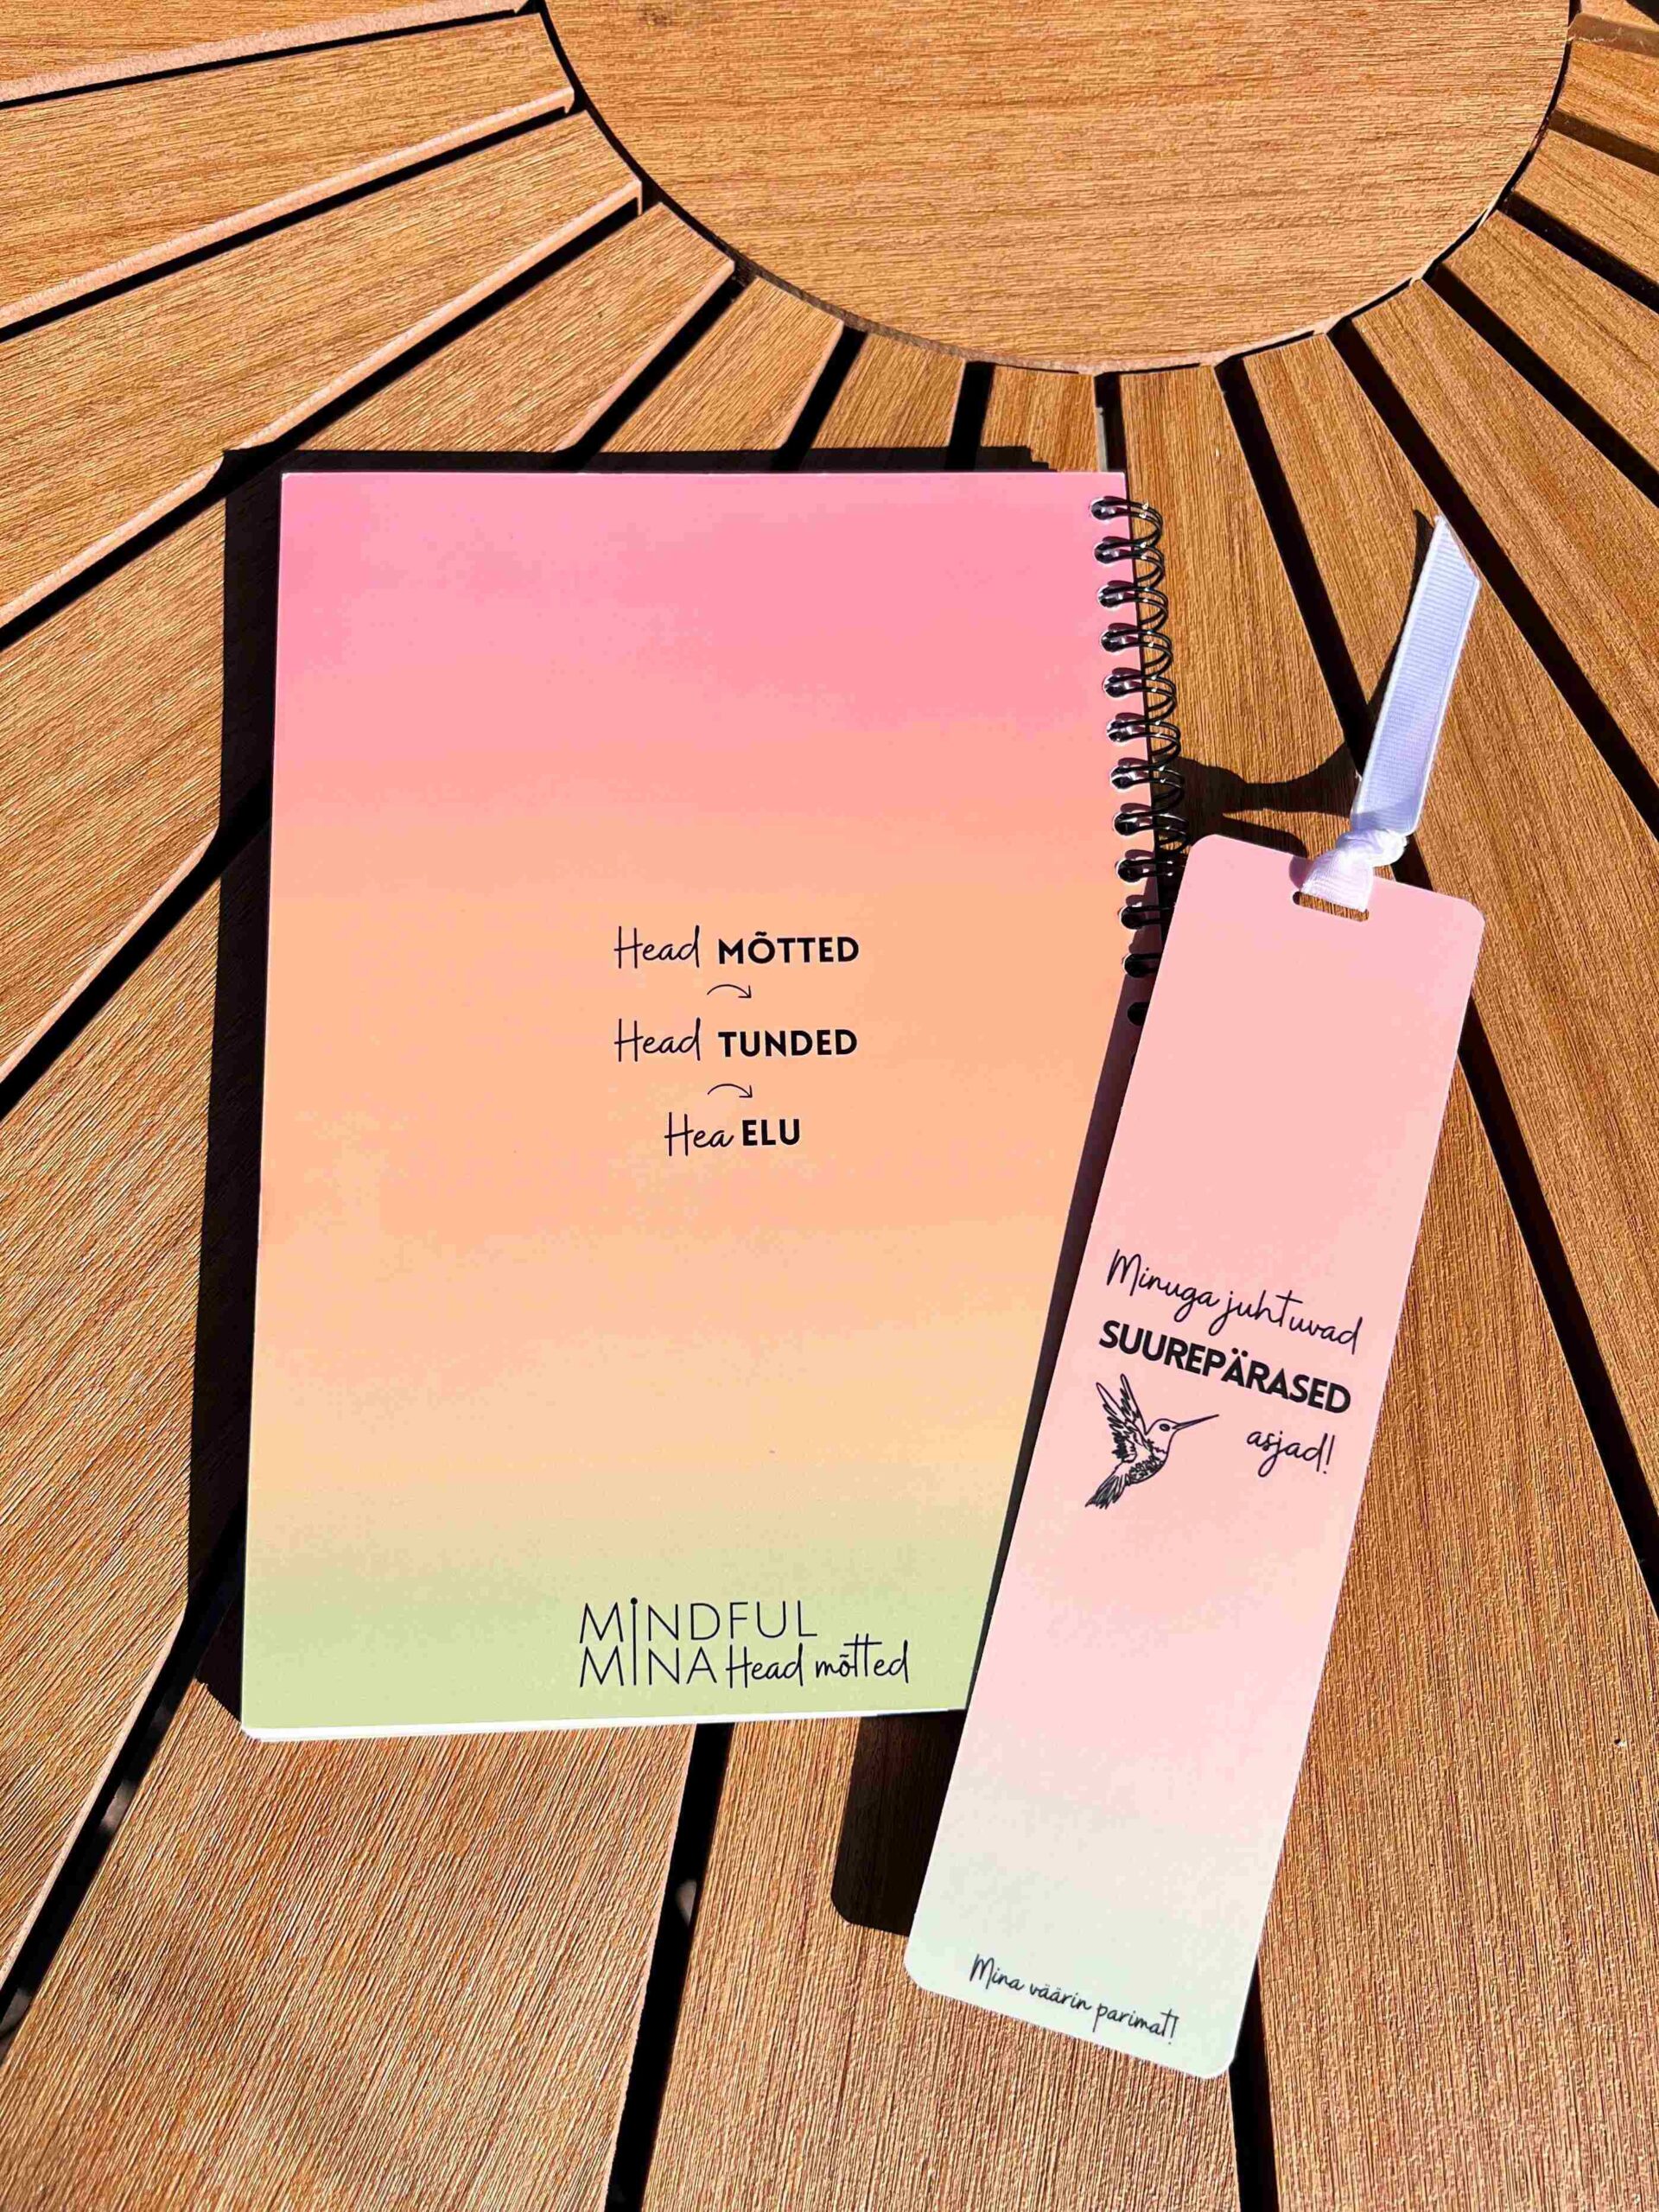 Head MÕTTED
Head TUNDED
Hea ELU
MINDFUL
MINA Head mõtted
Minuga juhtuvad
SUUREPÄRASED
asjad!
Mina väärin parimat!